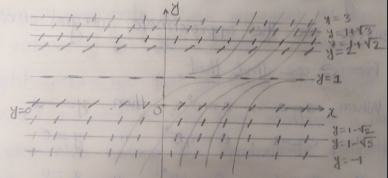 y
y = 3
y = 1+√3
y = 1+√2
y = 2
y = 1
y = 0
O
x
y = 1-√2
y = 1-√3
y = -1